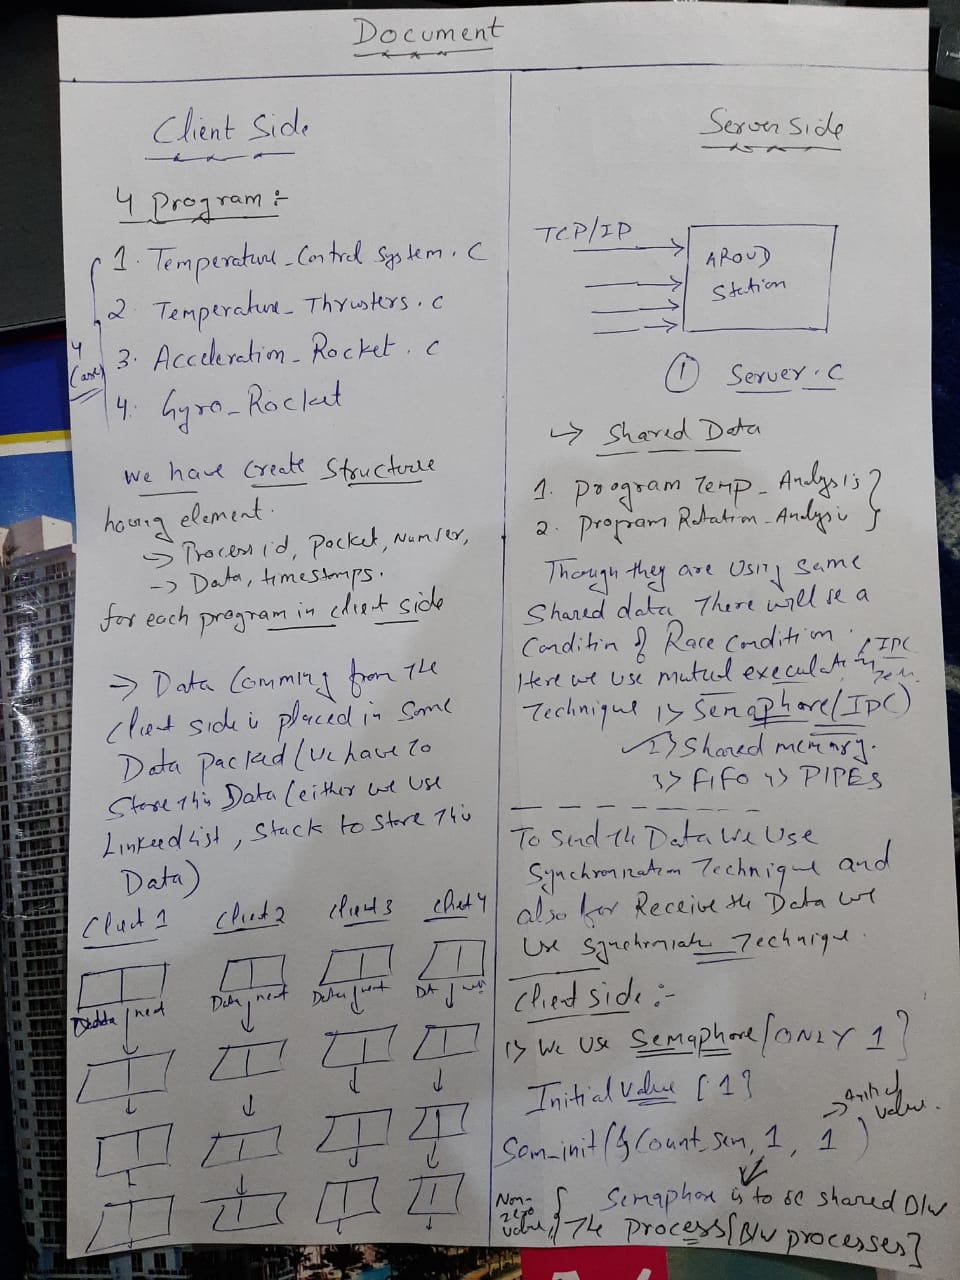 Document
Client Side
4 Program :-
1. Temperature_Control System. C
2. Temperature_Thrusters. C
3. Acceleration_Rocket. C
4. Gyro_Rocket
4
Case
we have Create Structure
having element.
-> Process id, Packet, Number,
-> Data, timestamps.
for each program in client side
-> Data Comming from The
Client side is placed in Some
Data Packed (we have To
Store This Data (either we use
Linked List, Stack to store This
Data)
Client 1 Client 2 Client 3 Client 4
Data next Data next Data next DA
Server Side
TCP/IP
Station
1 Server. C
-> Shared Data
1. Program Temp_Analysis
2. Program Rotation_Analysi
Though they are Using Same
Shared data There will be a
Condition of Race Condition.
Here we use mutual
IPC
Technique 1> Semaphore/(IPC)
2> Shared memory.
3> FIFO 4> PIPES
To Send the Data We Use
Synchronization Technique and
also for Receive the Data we
Use Technique.
Client side :-
1> We Use Semaphore [ONLY 1]
Initial value [1]
Initial
value.
Sem_init(&Count_sem, 1, 1)
Non-
zero
value,
Semaphore is to be shared B/w
The process[B/w processes]